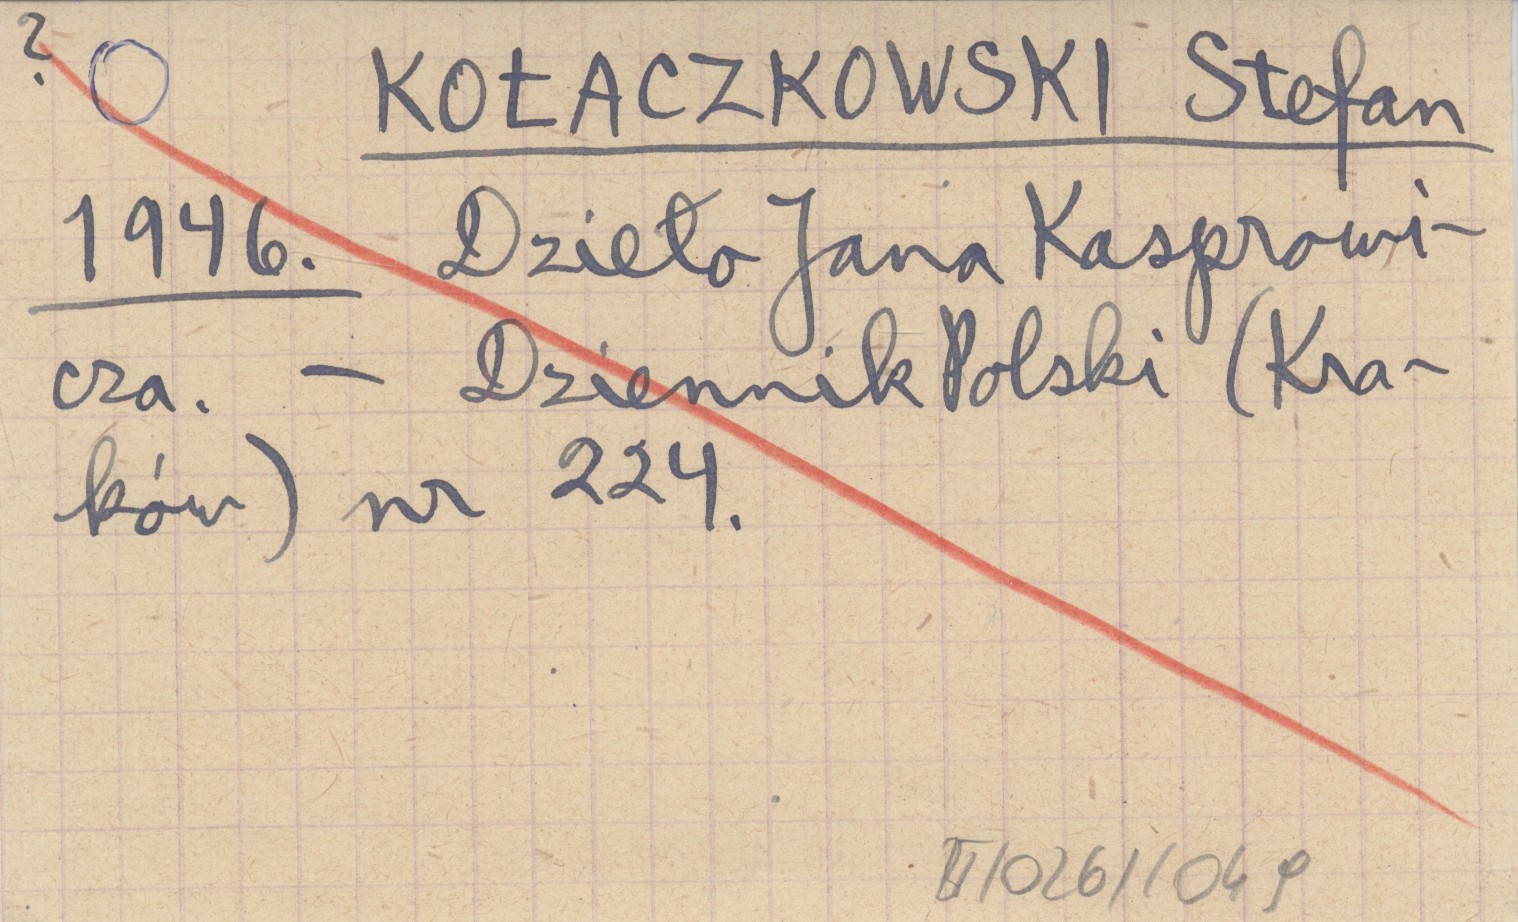 ?
KOŁACZKOWSKI Stefan
1946. Dzieło Jana Kasprowi-
cza. - Dziennik Polski (Kra-
ków) nr 224.